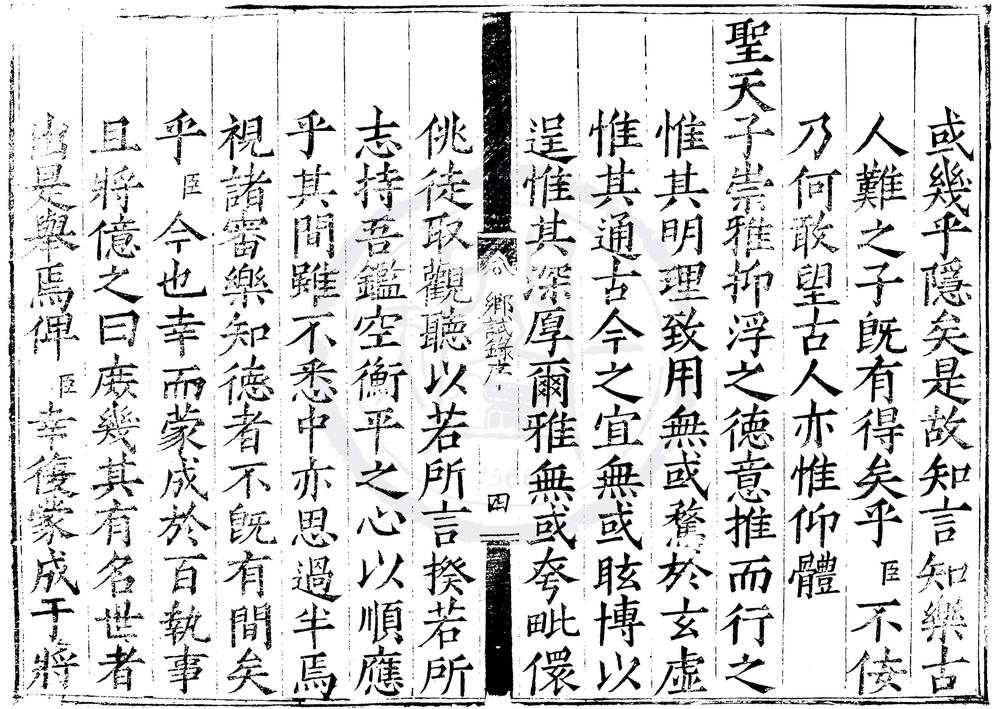 或幾乎隱矣是故知言知樂古
人難之子既有得矣乎臣不佞
乃何敢望古人亦惟仰體
聖天子崇雅抑浮之德意推而行之
惟其明理致用無或騖於玄虛
惟其通古今之宜無或眩博以
逞惟其深厚爾雅無或夸毗儇
鄉試錄序
四
佻徒取觀聽以若所言揆若所
志持吾鑑空衡平之心以順應
乎其間雖不悉中亦思過半焉
視諸審樂知德者不既有間矣
乎臣今也幸而蒙成於百執事
且將億之曰庶幾其有名世者
出是舉焉俾臣幸復蒙成于將